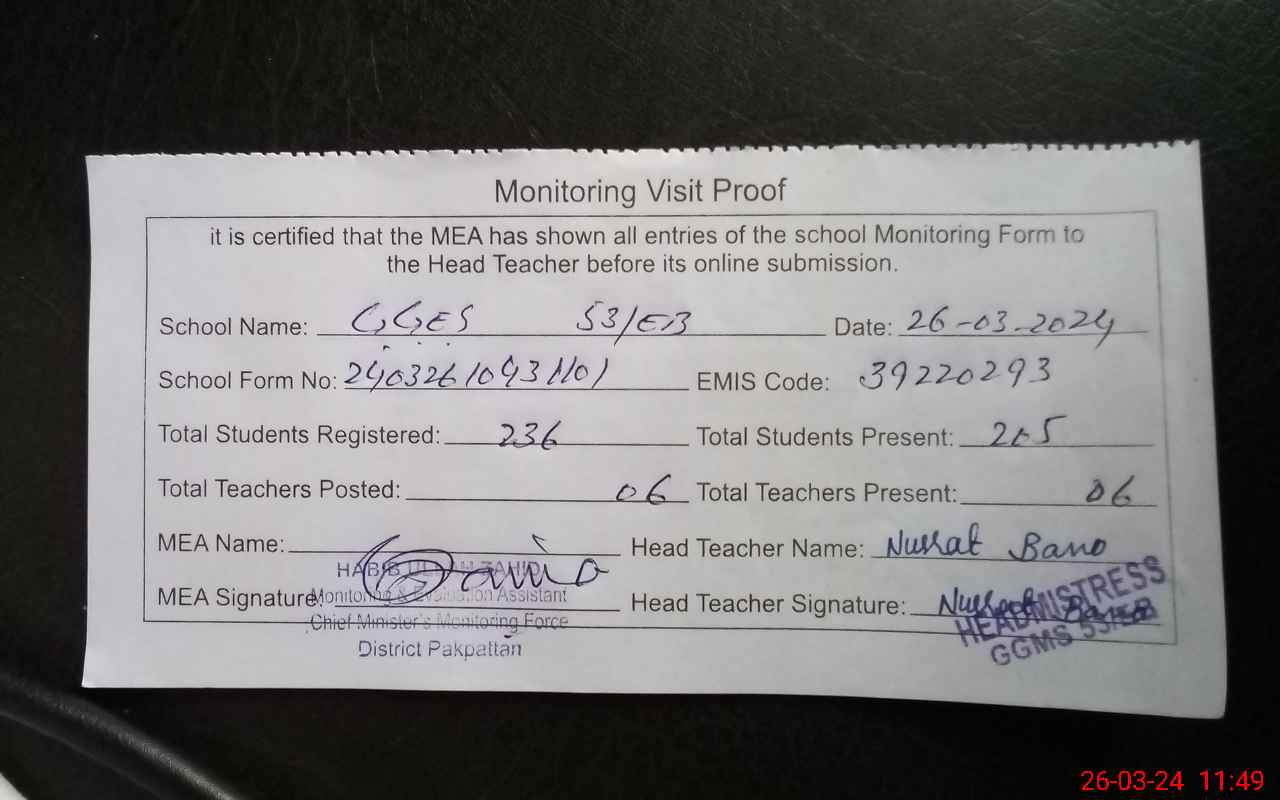 Monitoring Visit Proof
it is certified that the MEA has shown all entries of the school Monitoring Form to
the Head Teacher before its online submission.
School Name: GGES 53/EB Date: 26-03-2024
School Form No: 24032610431101 EMIS Code: 39220293
Total Students Registered: 236 Total Students Present: 205
Total Teachers Posted: 06 Total Teachers Present: 06
MEA Name: Head Teacher Name: Nusrat Bano
HABIB ULLAH ZAHID
MEA Signature: Head Teacher Signature: Nusrat Bano
Monitoring & Evaluation Assistant
Chief Minister's Monitoring Force
District Pakpattan
HEADMISTRESS
GGMS 53/EB
26-03-24 11:49